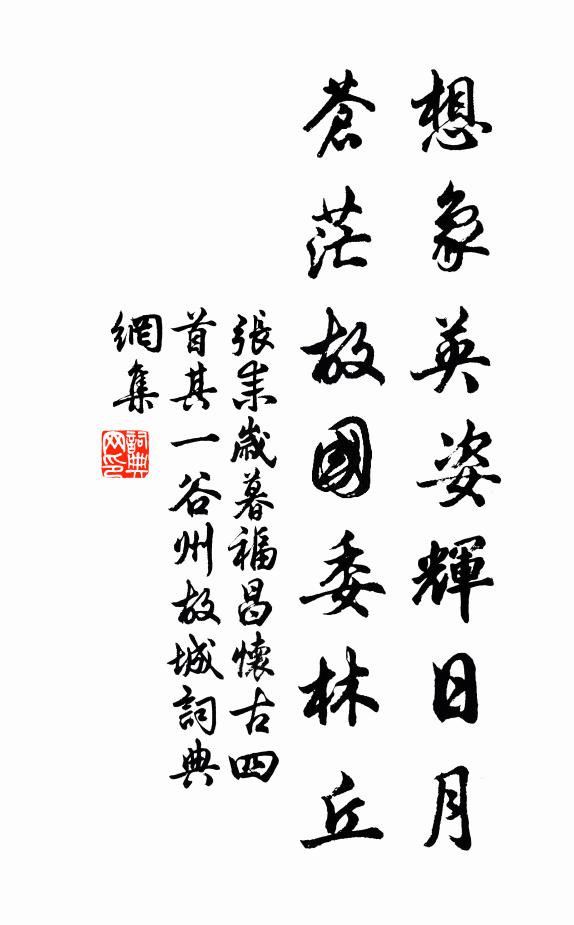 想象英姿輝日月
蒼茫故國委林丘
張耒歲暮福昌懷古四
首其一谷州故城詞典
網集
詞典
网印